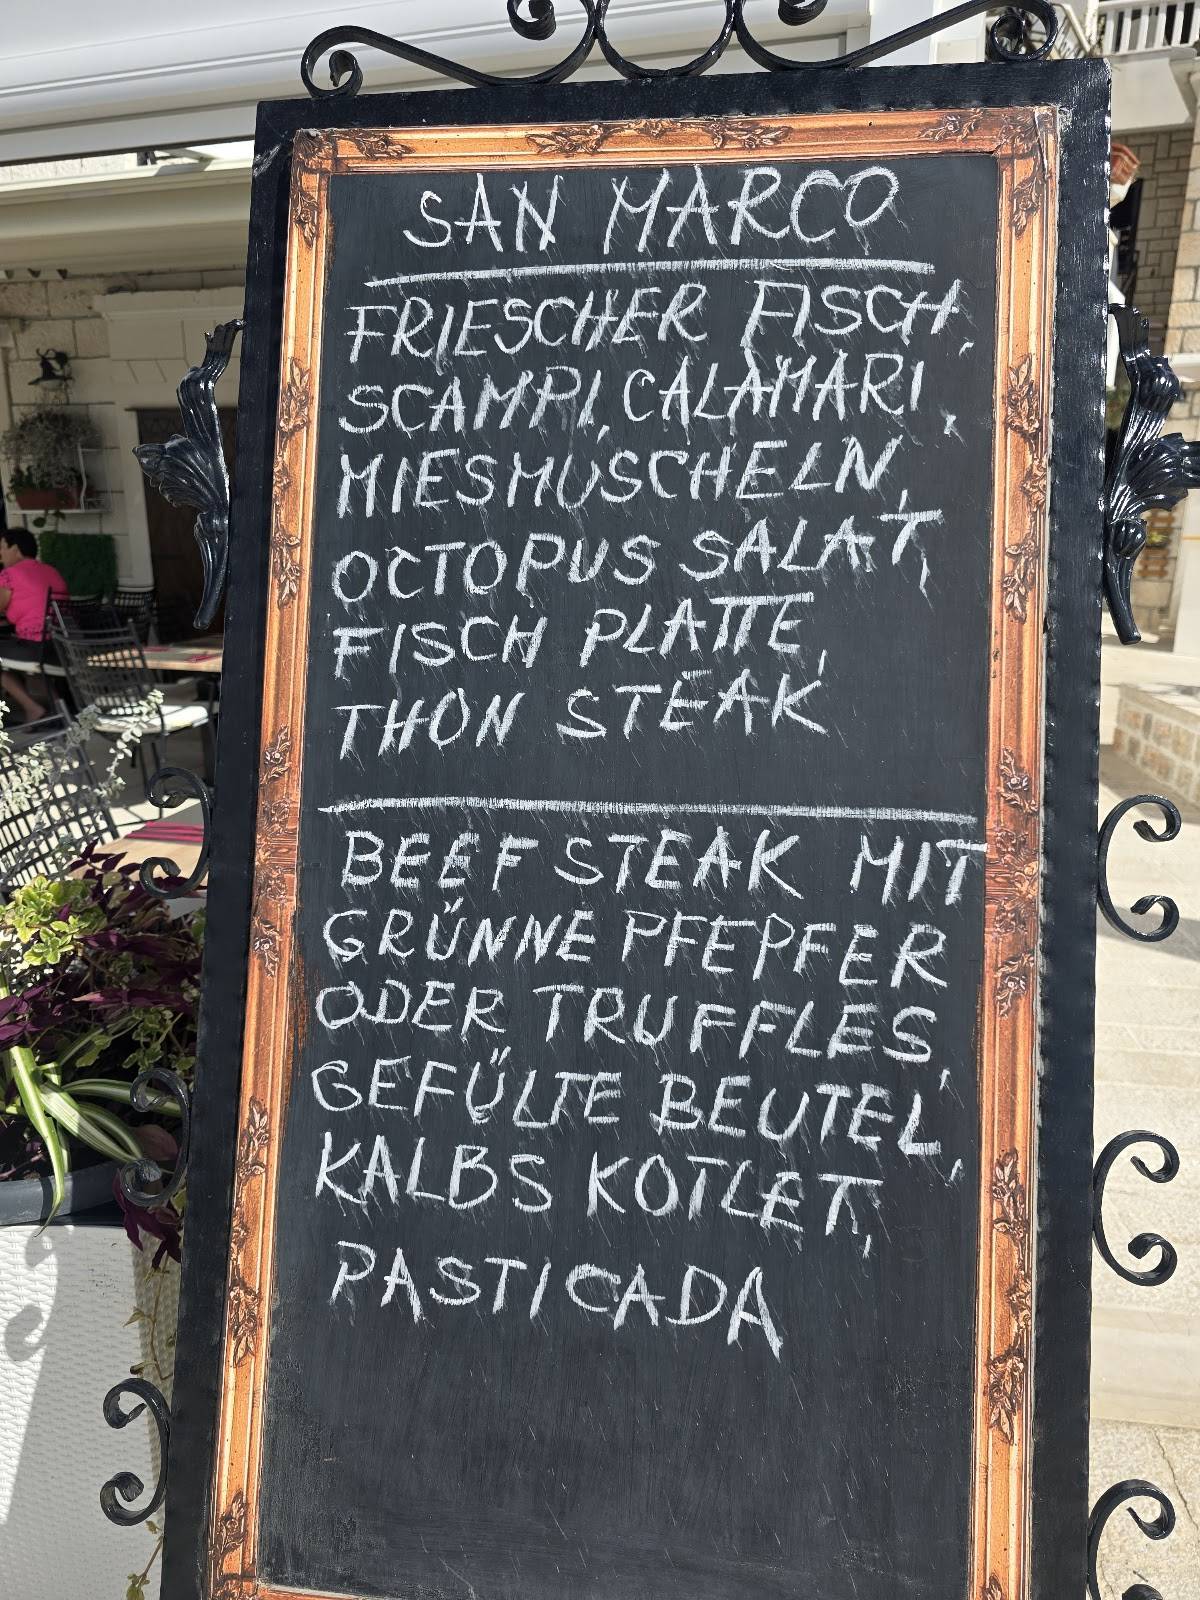 SAN MARCO
FRIESCHER FISCH,
SCAMPI, CALAMARI,
MIESMUSCHELN,
OCTOPUS SALAT,
FISCH PLATTE,
THON STEAK
BEEF STEAK MIT
GRÜNNE PFEPFER
ODER TRUFFLES,
GEFÜLTE BEUTEL,
KALBS KOTLET,
PASTICADA